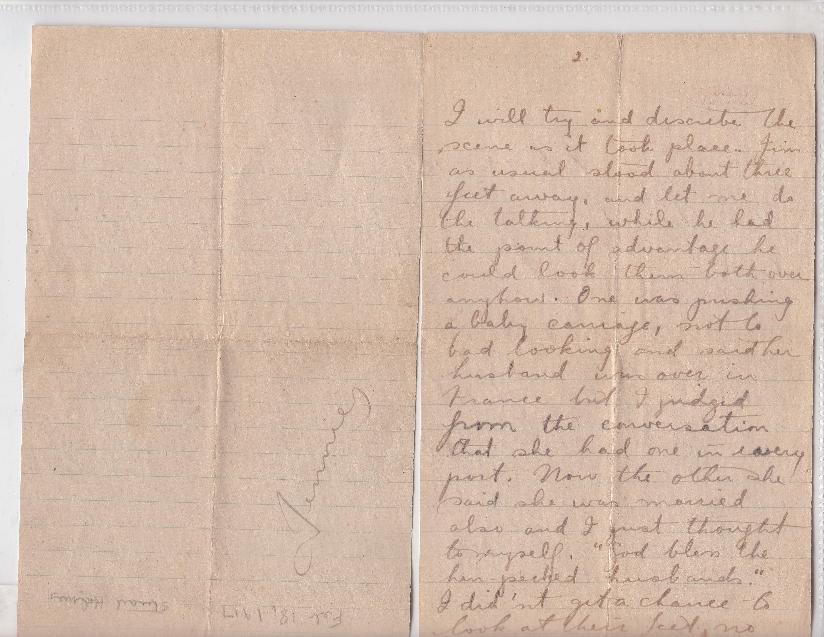 Jennie
Feb 18, 1917
2.
I will try and discribe the
scene as it took place. Jim
as usual stood about three
feet away, and let me do
the talking, while he had
the point of advantage he
could look them both over
anyhow. One was pushing
a baby carriage, not to
bad looking and said her
husband was over in
France but I judged
from the conversation
that she had one in every
port. Now the other she
said she was married
also and I just thought
to myself. "God bless the
hen-pecked husbands."
I did'nt get a chance to
look at their feet, no